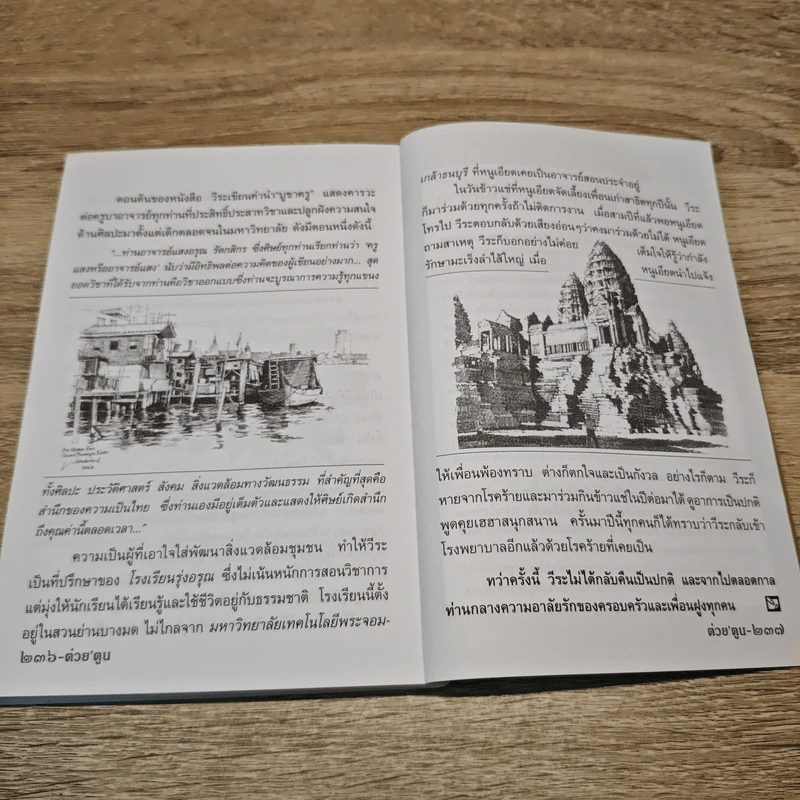 ตอนต้นของหนังสือ วีระเขียนคำนำ"บูชาครู" แสดงคารวะ
ต่อครูบาอาจารย์ทุกท่านที่ประสิทธิ์ประสาทวิชาและปลูกฝังความสนใจ
ด้านศิลปะมาตั้งแต่เด็กตลอดจนในมหาวิทยาลัย ดังมีตอนหนึ่งดังนี้
"...ท่านอาจารย์แสงอรุณ รัตกสิกร ซึ่งศิษย์ทุกท่านเรียกท่านว่า 'ครู
แสงหรืออาจารย์แสง' นับว่ามีอิทธิพลต่อความคิดของผู้เขียนอย่างมาก... สุด
ยอดวิชาที่ได้รับจากท่านคือวิชาออกแบบซึ่งท่านจะบูรณาการความรู้ทุกแขนง
ทั้งศิลปะ ประวัติศาสตร์ สังคม สิ่งแวดล้อมทางวัฒนธรรม ที่สำคัญที่สุดคือ
สำนึกของความเป็นไทย ซึ่งท่านเองมีอยู่เต็มตัวและแสดงให้ศิษย์เกิดสำนึก
ถึงคุณค่านี้ตลอดเวลา..."
ความเป็นผู้ที่เอาใจใส่พัฒนาสิ่งแวดล้อมชุมชน ทำให้วีระ
เป็นที่ปรึกษาของ โรงเรียนรุ่งอรุณ ซึ่งไม่เน้นหนักการสอนวิชาการ
แต่มุ่งให้นักเรียนได้เรียนรู้และใช้ชีวิตอยู่กับธรรมชาติ โรงเรียนนี้ตั้ง
อยู่ในสวนย่านบางมด ไม่ไกลจาก มหาวิทยาลัยเทคโนโลยีพระจอม-
๒๓๖-ต่วย'ตูน
เกล้าธนบุรี ที่หนูเอียดเคยเป็นอาจารย์สอนประจำอยู่
ในวันข้าวแช่ที่หนูเอียดจัดเลี้ยงเพื่อนเก่าสาธิตทุกปีนั้น วีระ
ก็มาร่วมด้วยทุกครั้งถ้าไม่ติดการงาน เมื่อสามปีที่แล้วพอหนูเอียด
โทรไป วีระตอบกลับด้วยเสียงอ่อนๆว่าคงมาร่วมด้วยไม่ได้ หนูเอียด
ถามสาเหตุ วีระก็บอกอย่างไม่ค่อย เต็มใจให้รู้ว่ากำลัง
รักษามะเร็งลำไส้ใหญ่ เมื่อ หนูเอียดนำไปแจ้ง
ให้เพื่อนพ้องทราบ ต่างก็ตกใจและเป็นกังวล อย่างไรก็ตาม วีระก็
หายจากโรคร้ายและมาร่วมกินข้าวแช่ในปีต่อมาได้ ดูอาการเป็นปกติ
พูดคุยเฮฮาสนุกสนาน ครั้นมาปีนี้ทุกคนก็ได้ทราบว่าวีระกลับเข้า
โรงพยาบาลอีกแล้วด้วยโรคร้ายที่เคยเป็น
ทว่าครั้งนี้ วีระไม่ได้กลับคืนเป็นปกติ และจากไปตลอดกาล
ท่ามกลางความอาลัยรักของครอบครัวและเพื่อนฝูงทุกคน
ต่วย'ตูน-๒๓๗